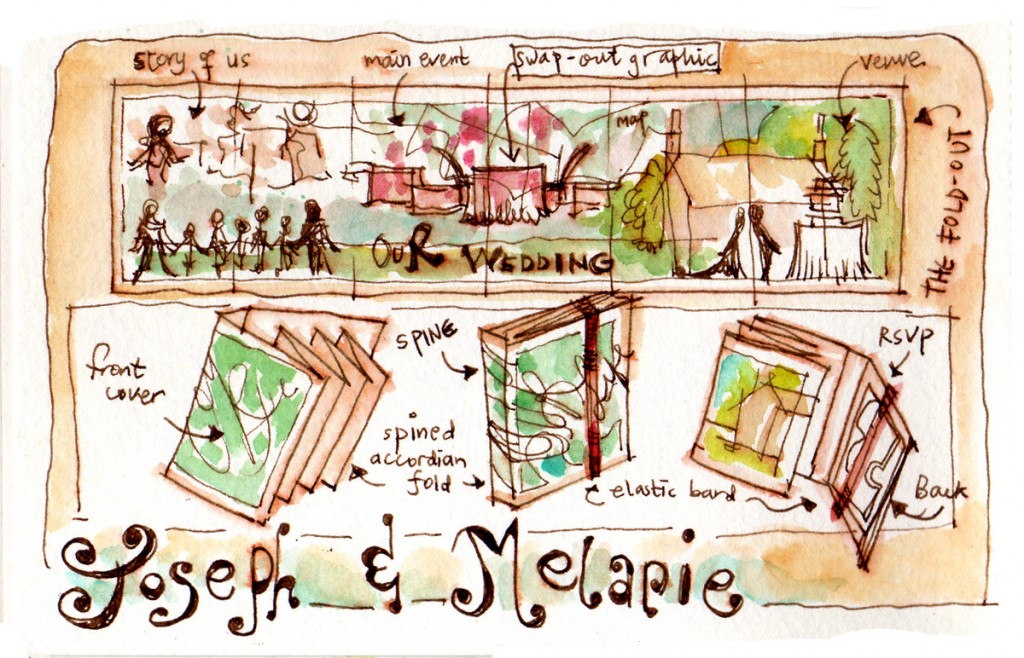 story of us
main event
swap-out graphic
venue
map
THE FOLD-OUT
OUR WEDDING
front
cover
SPINE
spined
accordian
fold
elastic band
RSVP
Back
Joseph & Melanie